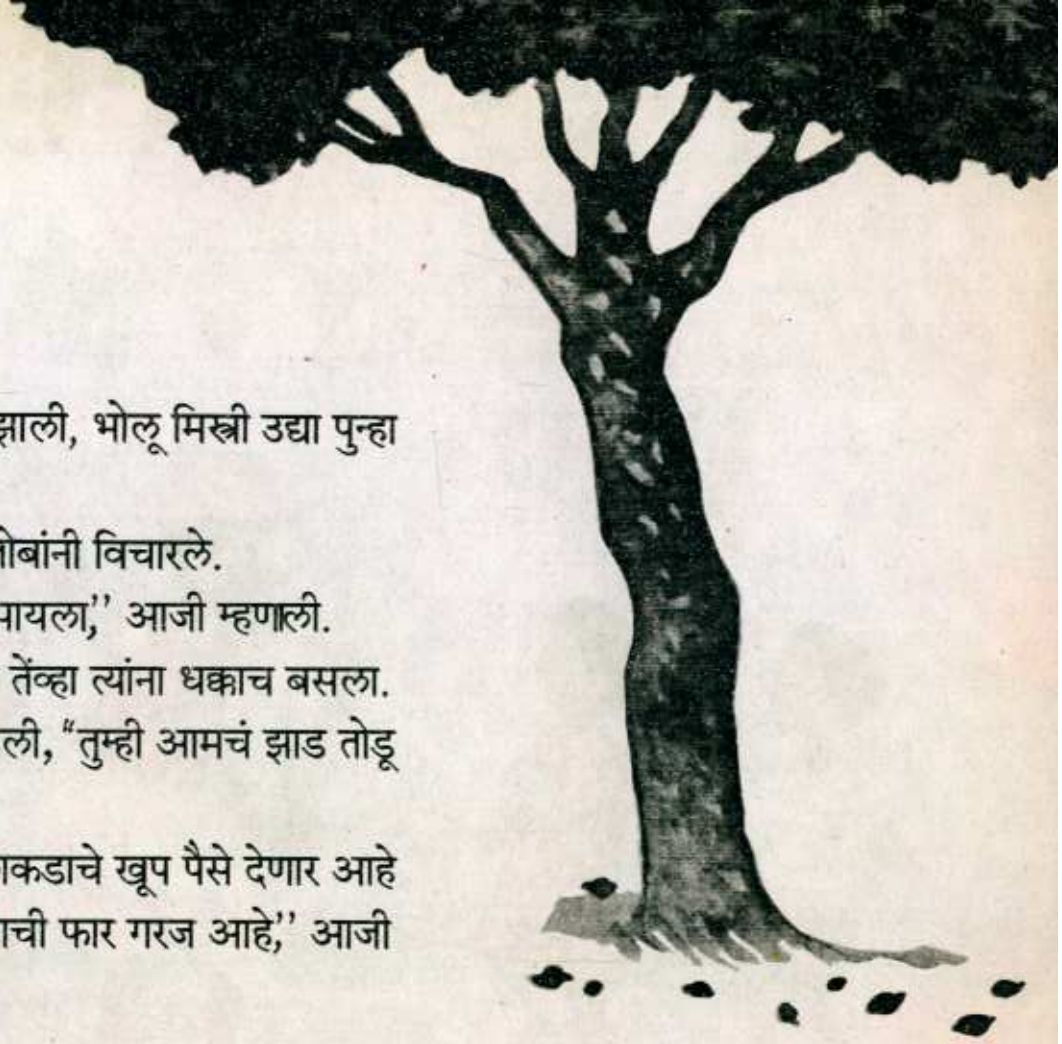 झाली, भोलू मिस्त्री उद्या पुन्हा
विचारले.
आजी म्हणाली.
तेंव्हा त्यांना धक्काच बसला.
"तुम्ही आमचं झाड तोडू
खूप पैसे देणार आहे
फार गरज आहे,'' आजी